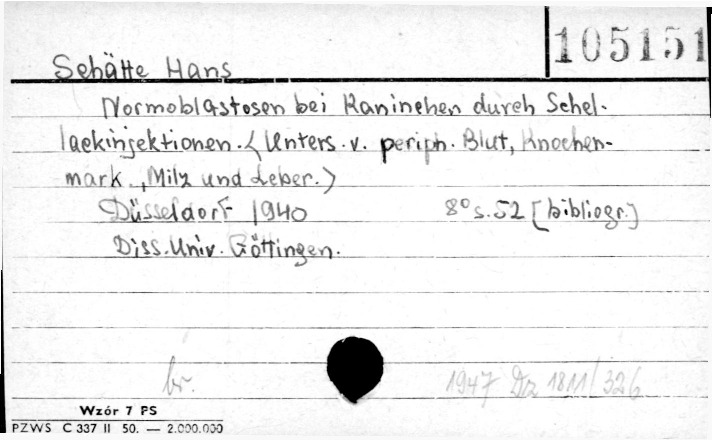 105151
Schätte Hans
Normoblastosen bei Kaninchen durch Schel-
lackinjektionen. <Unters. v. periph. Blut, Knochen-
mark., Milz und Leber.>
Düsseldorf 1940 8° s. 52 [bibliogr.]
Diss. Univ. Göttingen.
br. 1947 Dz 1811/326
Wzór 7 PS
PZWS C 337 II 50. — 2.000.000